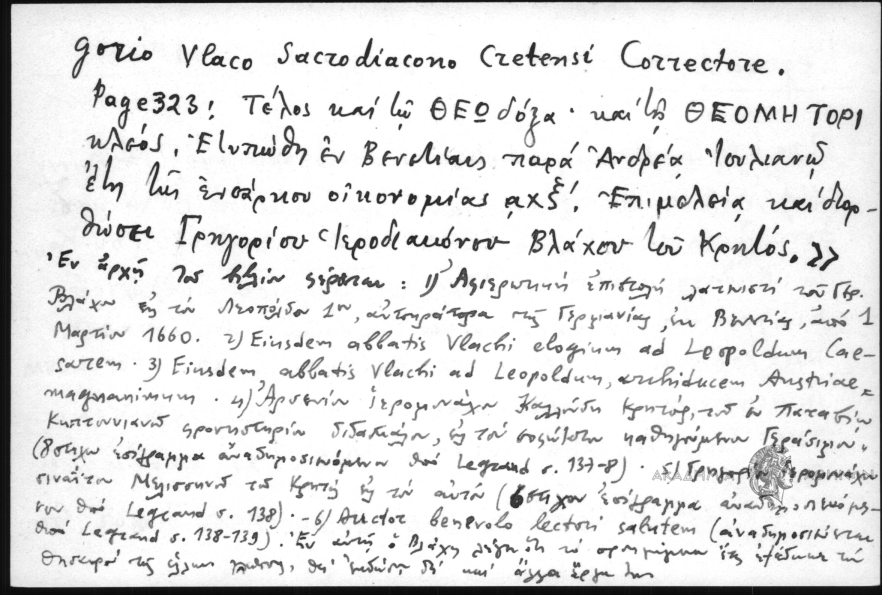 gorio Vlaco Sacrodiacono Cretensi Correctore.
Page 323: Τέλος καί τῷ ΘΕΩ δόξα · καί τῇ ΘΕΟΜΗΤΟΡΙ
κλεός. Ἐτυπώθη ἐν Βενετίαις παρά Ἀνδρέᾳ Ἰουλιανῷ
ἔτη τῆς ἐνσάρκου οἰκονομίας αχξ'. Ἐπιμελείᾳ καί διορ-
θώσει Γρηγορίου Ἱεροδιακόνου Βλάχου τοῦ Κρητός. »
Ἐν ἀρχῇ τοῦ βιβλίου φέρεται : 1) Ἀφιερωτική ἐπιστολή λατινιστί τοῦ Γερ.
Βλάχου εἰς τόν Λεοπόλδον 1ον, αὐτοκράτορα τῆς Γερμανίας, ἐκ Βενετίας, ἀπό 1
Μαρτίου 1660. 2) Eiusdem abbatis Vlachi elogium ad Leopoldum Cae-
sarem. 3) Eiusdem abbatis Vlachi ad Leopoldum, archiducem Austriae
magnanimum. 4) Ἀρσενίου ἱερομονάχου Καλλούδη Κρητός, τοῦ ἐν Παταβίῳ
Κηπουνιανοῦ φροντιστηρίου διδασκάλου, εἰς τόν καθηγούμενον Γεράσιμον.
(8στιχον ἐπίγραμμα ἀναδημοσιευόμενον ὑπό Legrand σ. 137-8). 5) Γρηγορίου ἱερομονάχου
σιναΐτου Μελισσηνοῦ τοῦ Κρητός εἰς τόν αὐτόν (6στιχον ἐπίγραμμα ἀναδημοσιευόμε-
νον ὑπό Legrand σ. 138). - 6) Auctor benevolo lectori salutem (ἀναδημοσιεύεται
ὑπό Legrand σ. 138-139). Ἐν αὐτῇ ὁ Βλάχος λέγει ὅτι τό
θησαυρό τῆς γλώσσης, θά ἐκδώσῃ δέ καί ἄλλα ἔργα του